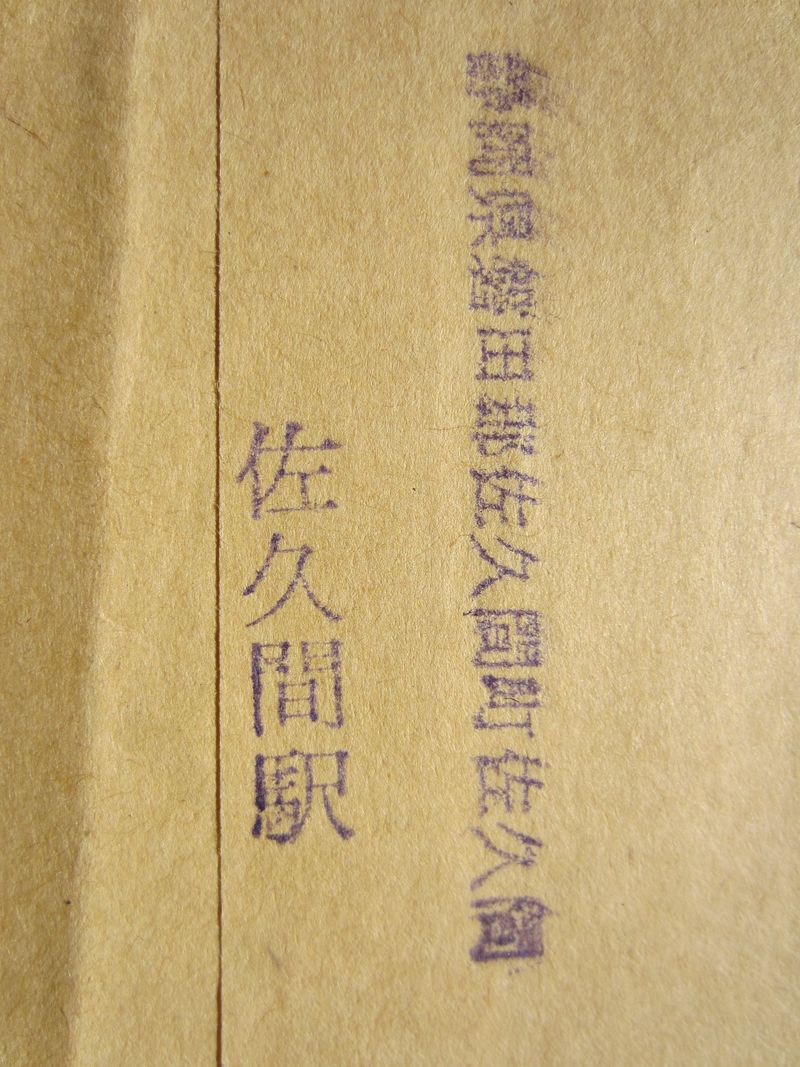 静岡県磐田郡佐久間町佐久間
佐久間駅